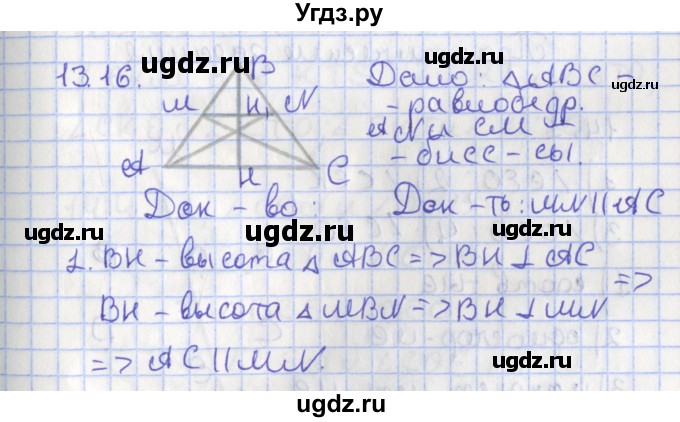 Угдз.ру
13.16.
B
M
H₁
N
A
H
C
Дано: △ABC –
– равнобедр.
AN и CM
– бисс – сы.
Док – во:
Док – ть: MN || AC
1. BH – высота △ ABC => BH ⊥ AC
=>
BH – высота △ MBN => BH ⊥ MN
=> AC || MN.
ugdz.ru
ugdz.ru
ugdz.ru
ugdz.ru
ugdz.ru
ugdz.ru
ugdz.ru
ugdz.ru
ugdz.ru